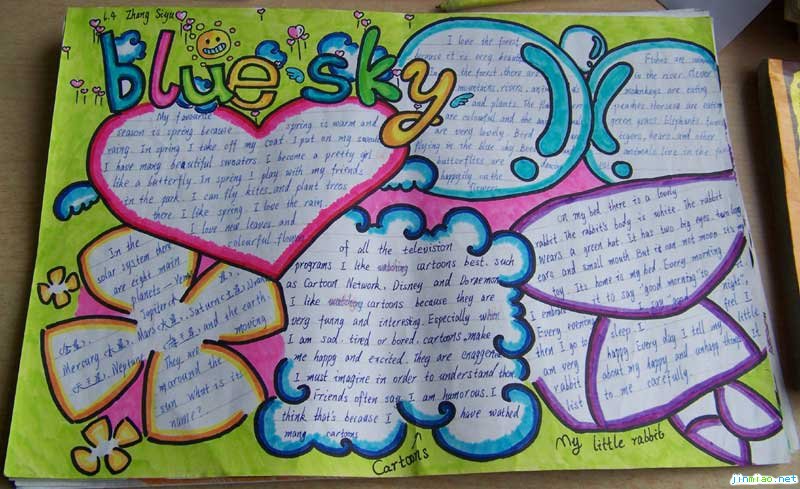 6.4 Zhang Siyu
blue sky
My favourite
season is spring because spring is warm and
rainy. In spring I take off my coat. I put on my sweater
I have many beautiful sweaters. I become a pretty girl
like a butterfly. In spring I play with my friends
in the park. I can fly kites and plant trees
there I like spring. I love the rain.
I love new leaves and
colourful flowers
I love the forest
because it is very beautiful
In the forest, there are
mountains, rivers, animals
and plants. The
are colourful and the
are very lovely. Bird
flying in the blue sky. Bees
butterflies are dancing
happily in the
flowers
Fishes are
in the river. Clever
monkeys are eating
peaches, horses are eating
green grass. Elephants,
tigers, bears and other
animals live in the
In the
solar system there
are eight main
planets — Venus
(金星), Jupiter (木星), Saturn (土星), Uranus
Mercury (水星), Mars (火星),
(天王星), Neptune and the earth.
They are moving
around the
sun. what is its
name?
of all the television
programs I like cartoons best. such
as Cartoon Network, Disney and Doraemon
I like cartoons because they are
very funny and interesting. Especially when
I am sad. tired or bored, cartoons make
me happy and excited. They are
I must imagine in order to understand them
Friends often say I am humorous. I
think that's because I have wathed
many cartoons
Cartoons
On my bed there is a lovely
rabbit. The rabbit's body is white. The rabbit
wears a green hat. It has two big eyes. two long
ears and small mouth. But it can not moon, it's my
toy. Its home is my bed. Every morning
I embrace it to say "good morning" to
Every evening I say night",
then I go to sleep. I feel I
am very happy. Every day I tell my little
rabbit about my happy and unhapp things. It
list to me carefully.
My little rabbit
jinmiao.net